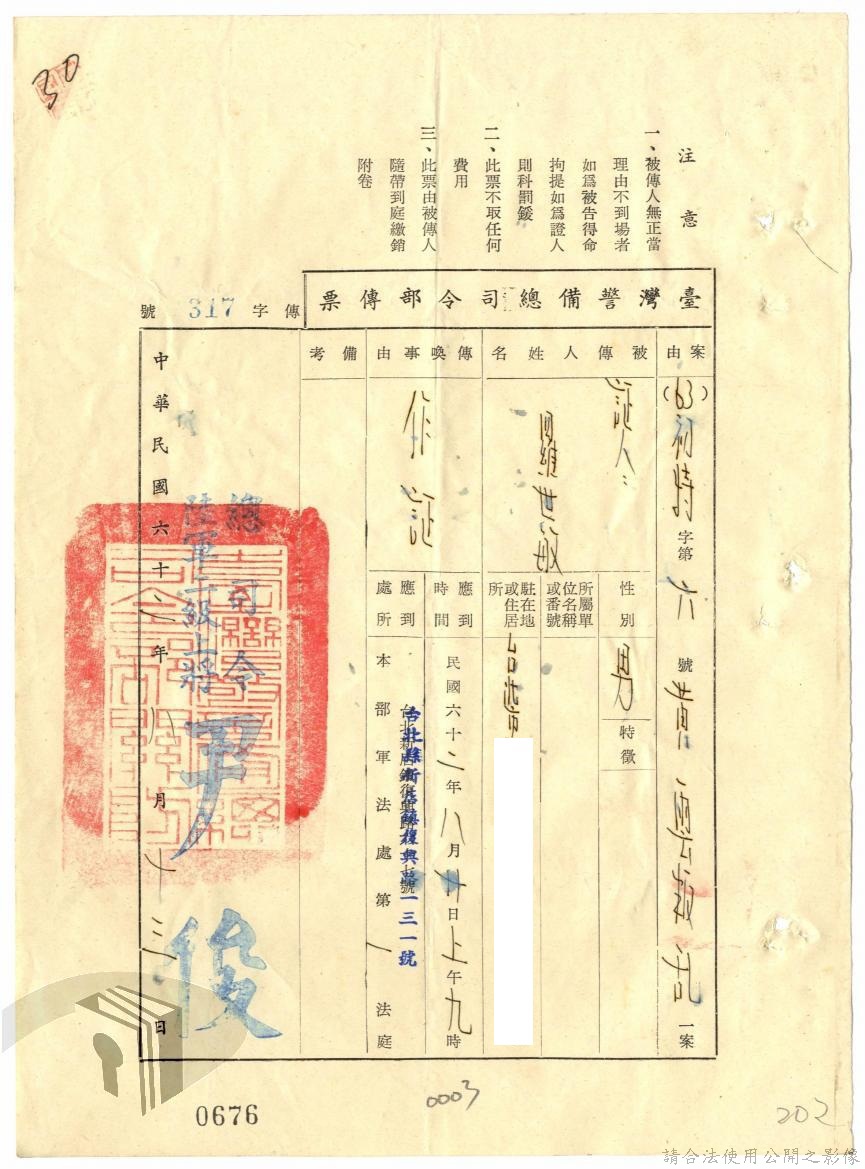 30
注意
一、被傳人無正當
理由不到場者
如爲被告得命
拘提如爲證人
則科罰鍰
二、此票不取任何
費用
三、此票由被傳人
隨帶到庭繳銷
附卷
臺灣警備總司令部傳票
傳字 317 號
案由
(63)初特字第六號黃 一案
被傳人姓名
証人：
羅世敏
性別
男
特徵
所屬單位名稱或番號
駐在地或住居所
傳喚事由
作証
應到時間
民國六十二年八月廿日上午九時
應到處所
台北縣新店鎮復興路一三一號
本部軍法處第一法庭
備考
總司令
陸軍二級上將
尹俊
中華民國六十 年八月十三日
0676
0003
202
請合法使用公開之影像